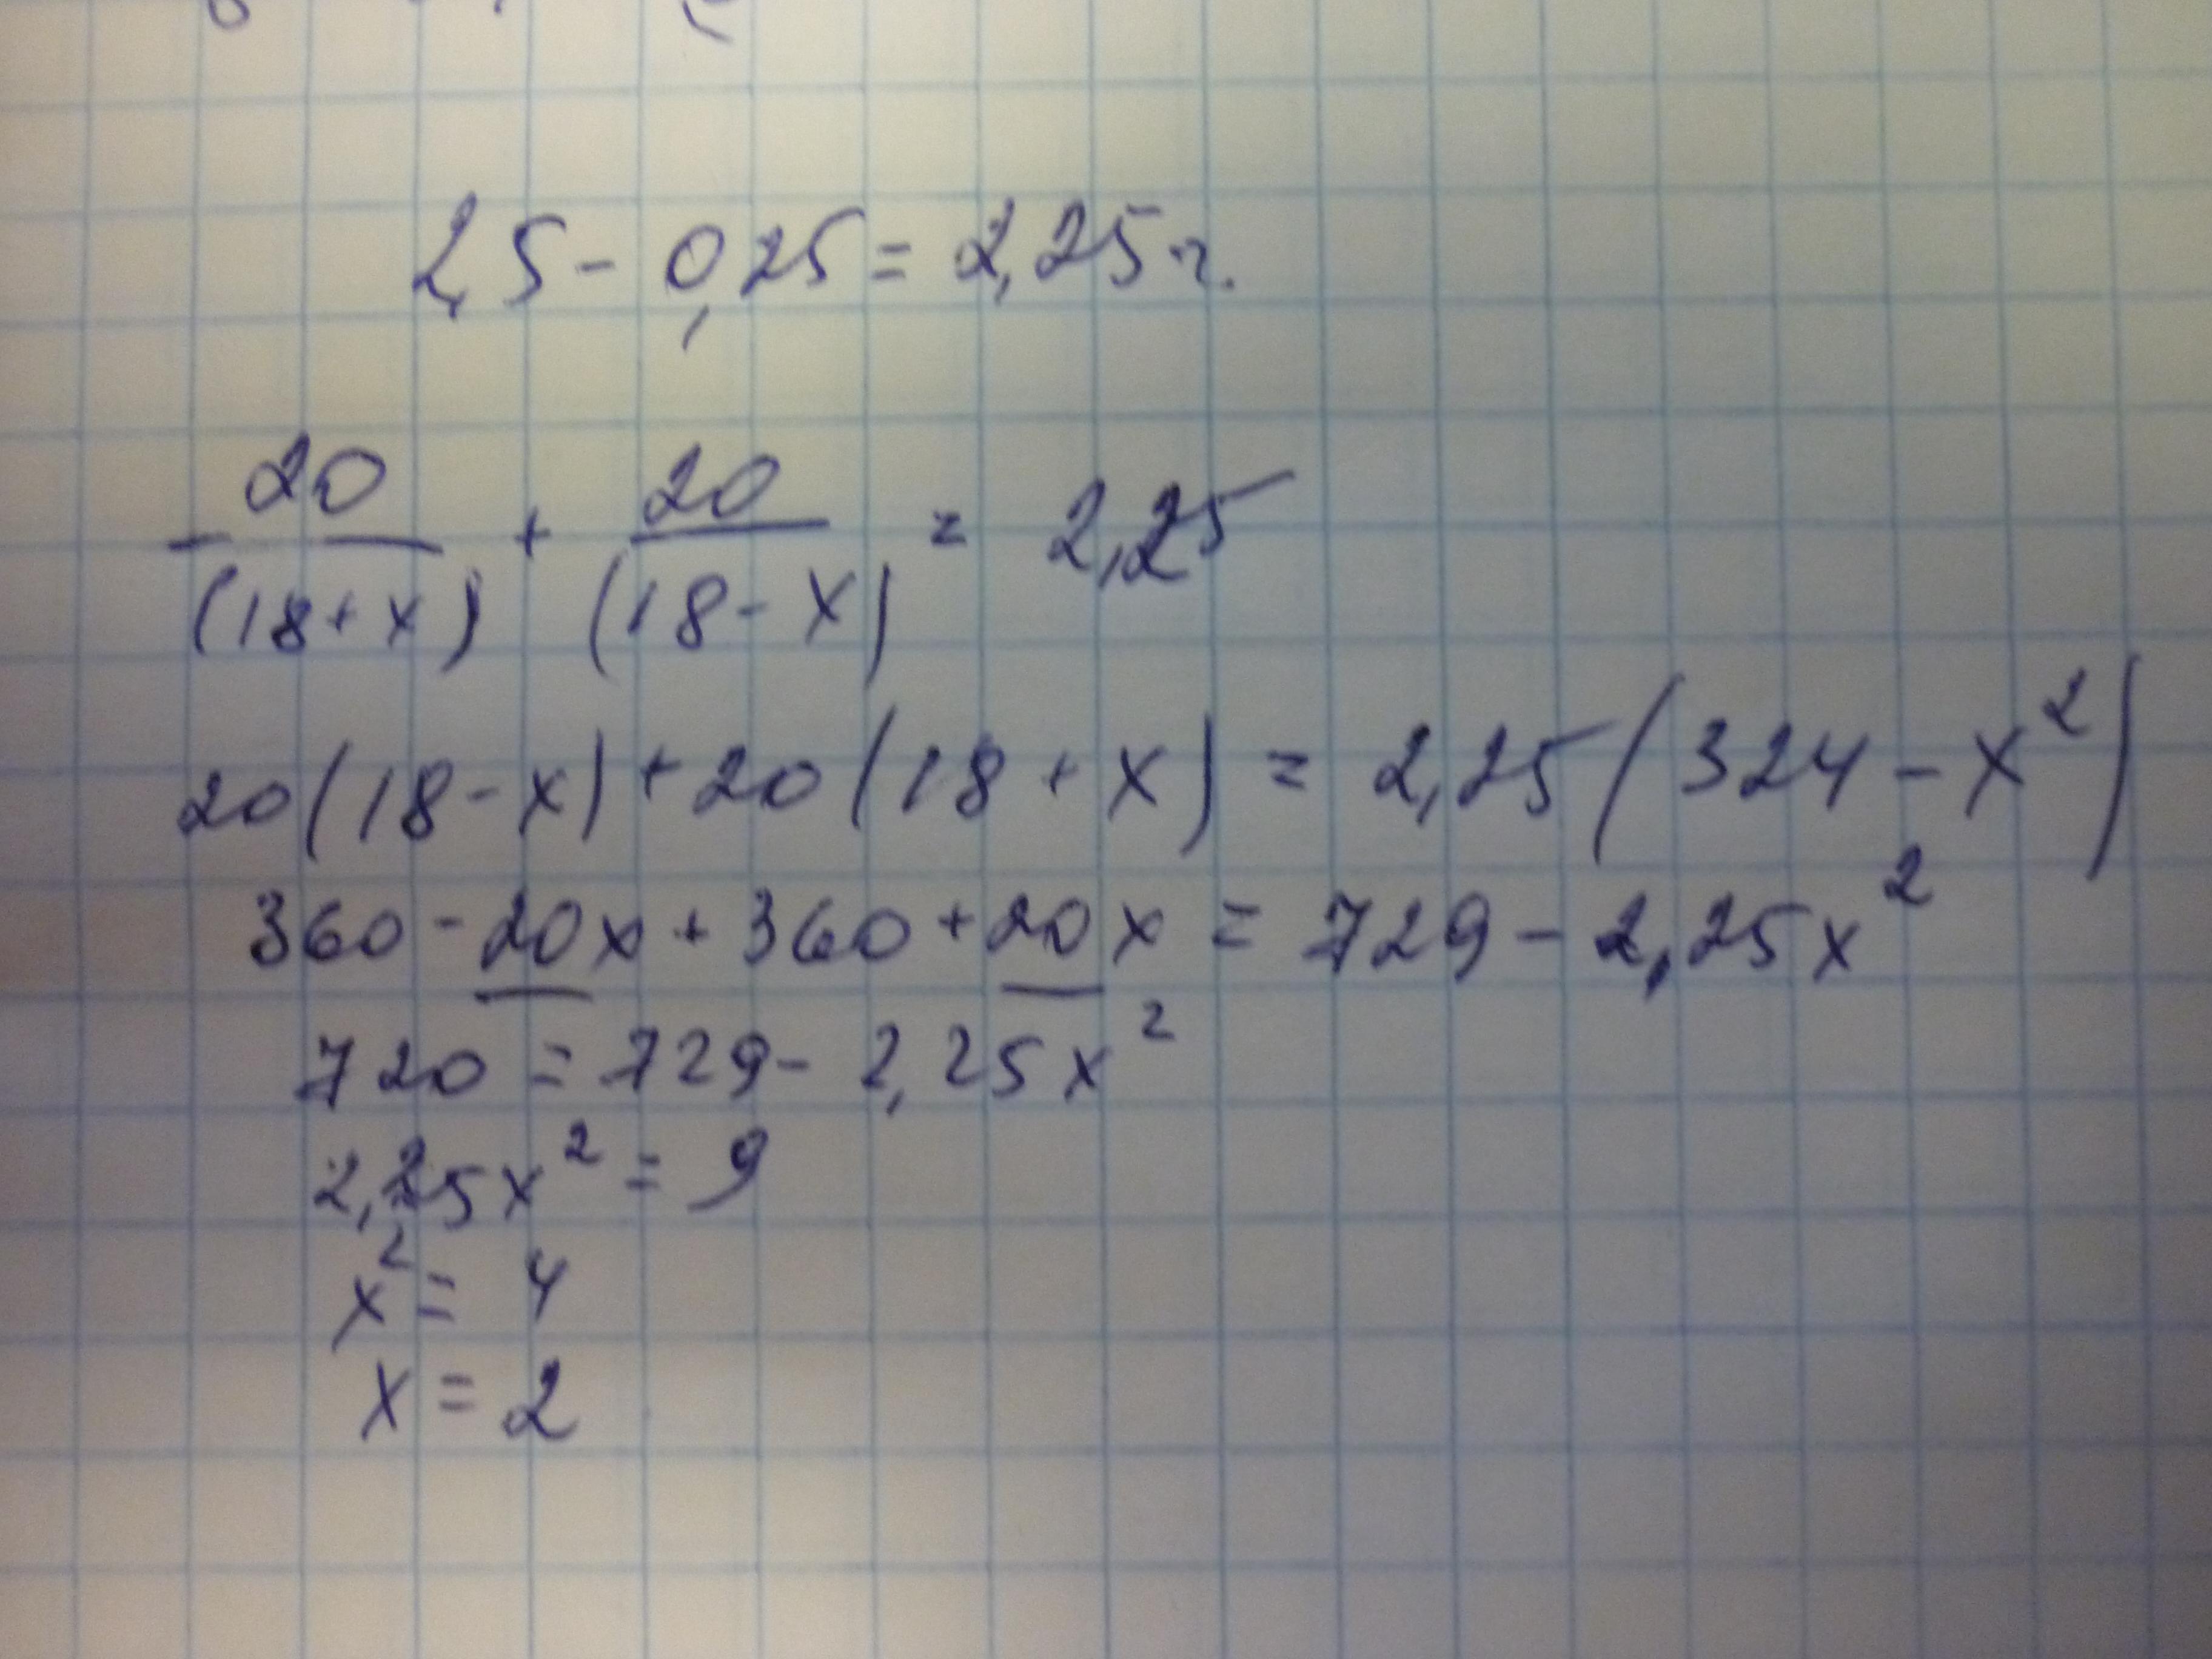 2,5 - 0,25 = 2,25 ч.
20/(18+x) + 20/(18-x) = 2,25
20(18-x)+20(18+x) = 2,25(324-x²)
360-20x+360+20x = 729-2,25x²
720 = 729- 2,25x²
2,25x² = 9
x² = 4
x = 2